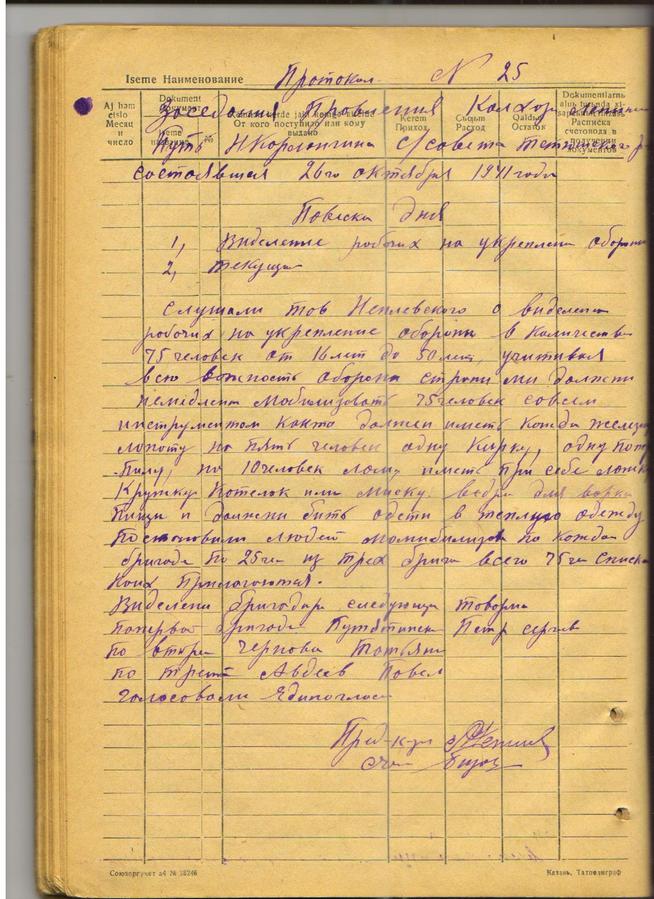 Iseme Наименование Протокол № 25
Aj hәm cislo Месяц и число
Dokument Документ
iseme №
От кого поступило или кому выдано
Kerem Приход
Cьqьm Расход
Qaldьq Остаток
Расписка счетовода в получении документов
Заседания Правления Колхоз
Путь с/совета Тетюшского
состоявшая 26го октября 1941 года
Повеска дня
1, Виделение робочих на укреплени оборони
2, текущи
слушали тов Неплевского о виделени
робочих на укрепление оборони в количестве
75 человек от 16 лет до 50 лет, учитивая
всю вожность оборони страни ми должни
немедлено мобилизовать 75 человек совсем
инструментом как то должен иметь кожда железну
лопоту на пять человек одну кирку, одну попер
пилу, на 10 человек лом, иметь при себе ложк
Кружку котелок или миску. ведра для варки
пищи и должни бить одети в теплую одежду
Постоновили людей по кождо
бригоде по 25 че из трех брига всего 75 че списки
коих прилогоются.
Виделени бригодира следующи товорищи
поперво бригоде Петр сергев
по вторе Чернова Татьяна
по трете Авдеев Повел
голосовали Единоглас
Пред-к-за
счет
Союзоргучет д4 № 18246 Казань, Татполиграф